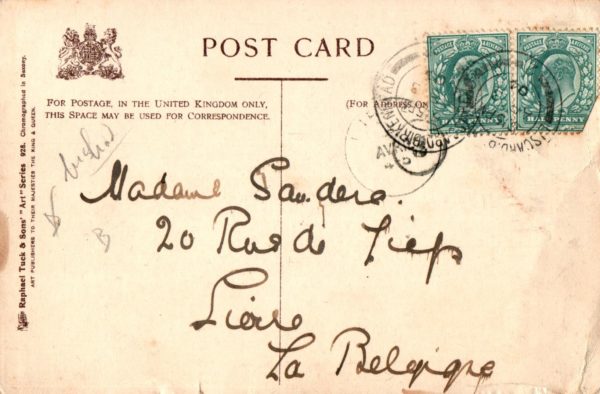 POST CARD
FOR POSTAGE, IN THE UNITED KINGDOM ONLY,
THIS SPACE MAY BE USED FOR CORRESPONDENCE.
(FOR ADDRESS ON
Raphael Tuck & Sons' "Art" Series 928. Chromographed in Saxony.
ART PUBLISHERS TO THEIR MAJESTIES THE KING & QUEEN.
POSTAGE REVENUE
HALF PENNY
BIRKENHEAD
Madame Sanders.
20 Rue de
Lierre
La Belgique